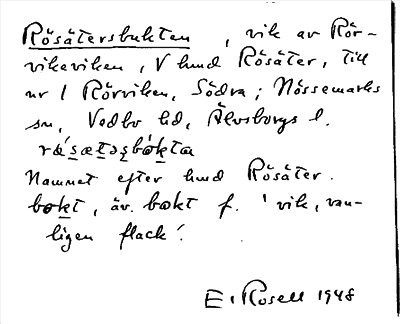 Rösätersbukten, vik av Rör-
vikeviken, V hmd Rösäter, till
nr 1 Rörviken, Södra; Nössemarks
sn, Vedbo hd, Älvsborgs l.
Namnet efter hmd Rösäter.
bokt, äv. bokt f. 'vik, van-
ligen flack'.
E. Rosell 1948